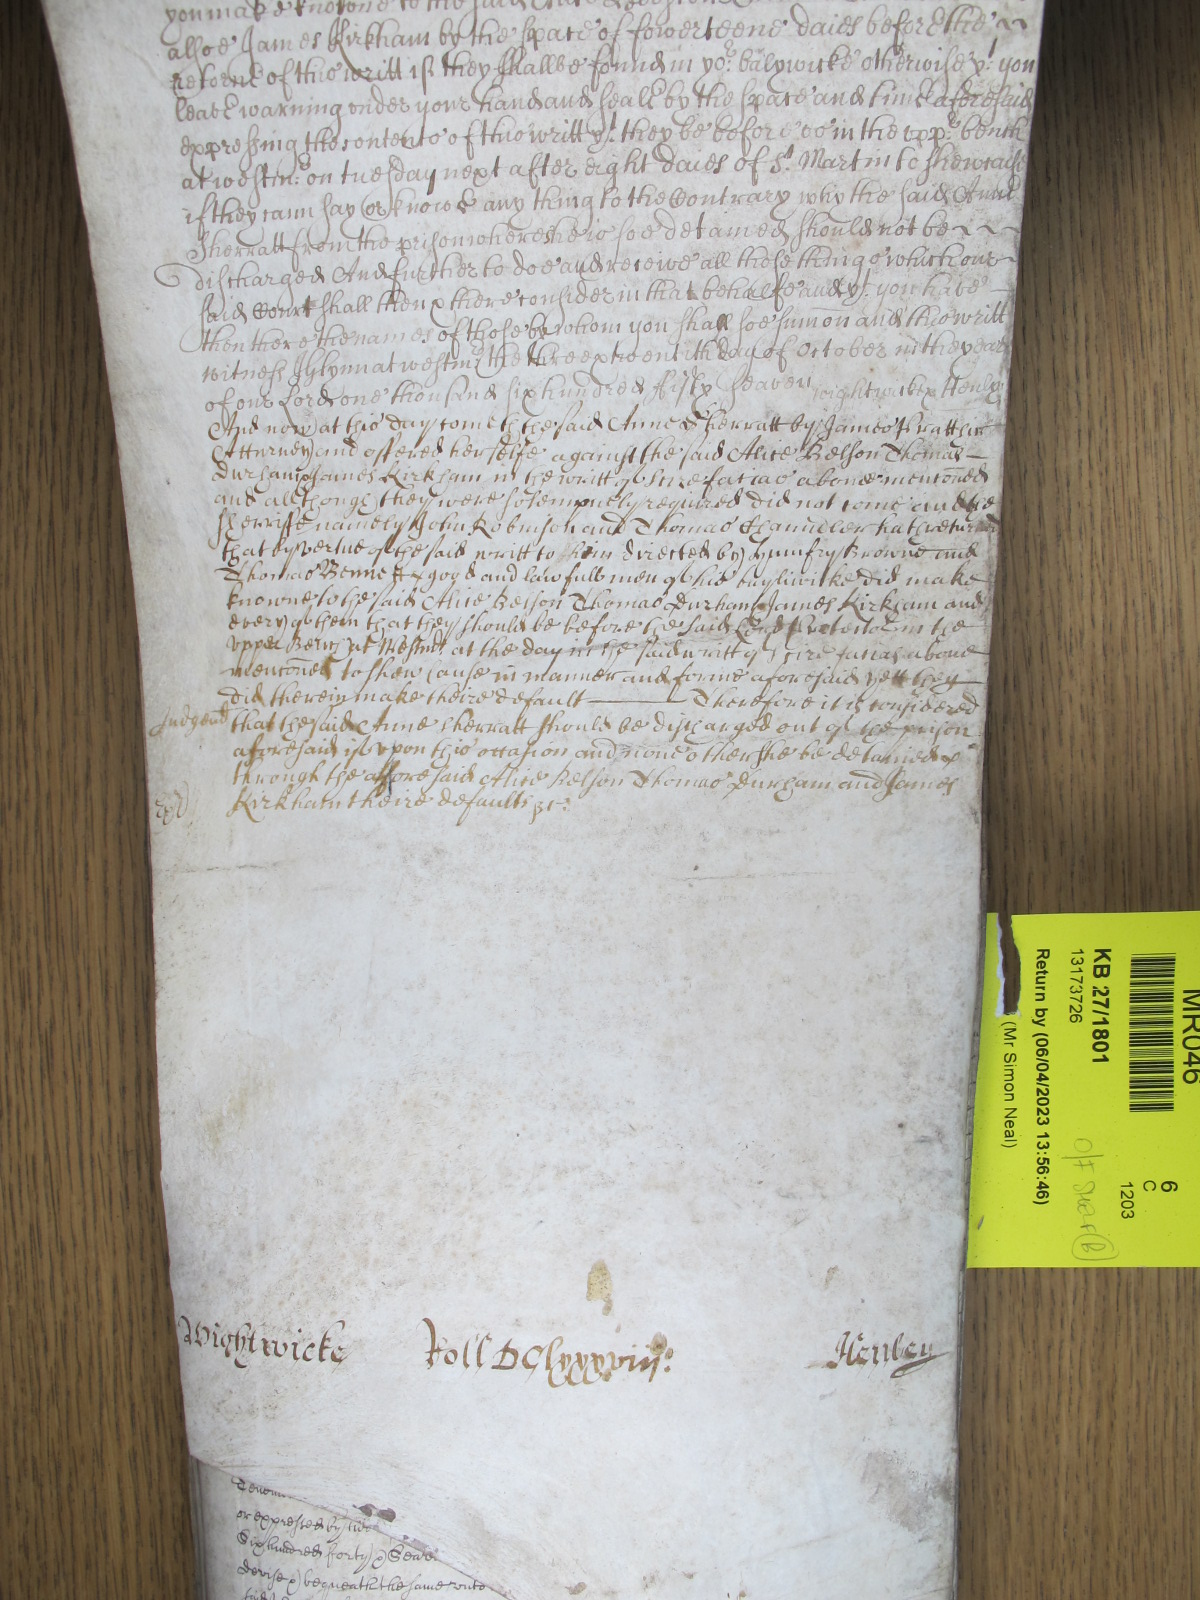 you make knowne to the said Alice
alsoe James Kirkham by the space of fowerteene daies before the
retorne of this writt if they shalbe found in yor. balywicke otherwise yt. you
leave warning under your hand and seale by the space and time aforesaid
expressing the contents of this writt yt. they be before us in the upp: bench
at westm: on tuesday next after eight daies of St. Martin to shew cause
if they cann say or knowe any thing to the Contrary why the said Anne
Sherratt from the prison where shee is soe detained should not be
discharged And further to doe and receive all those things which our
said Court shall then & there consider in that behalfe and yt. you have
then there the names of those by whom you shall soe sumon and this writt
witness J Glynn at westmr. the three & twentith day of October in the yeare
of our Lord one thousand six hundred fifty & seaven wightwicke & Henley
And now at this day come th the said Anne Sherratt by James Prattler
Atturney and offered herselfe against the said Alice Belson Thomas
Durham & James Kirkham in the writt of Scire facias above mentoned
and although they were solempnely required did not come and the
Sherriffe namely John Robinson and Thomas Chandler hath returned
that by vertue of the said writt to them directed by Humfry Browne and
Thomas Bennett good and lawfull men of his bayliwicke did make
knowne to the said Alice Belson Thomas Durham James Kirkham and
every of them that they should be before the said Lord Protector in the
upper Bench at Westmr. at the day in the said writt of Scire facias above
mentoned to shew cause in manner and forme aforesaid yett they
did therein make theire default Therefore it is considered
Judgemt that the said Anne Sherratt should be discharged out of the prison
aforesaid if upon this occasion and none other she be detained
through the afforesaid Alice Belson Thomas Durham and James
Kirkham theire defaults &c:
Wightwicke Roll DClxxxviii: Henley
or expressed by
Six hundred forty & Seav
devise & bequeath the same unto
MR046
6
C
1203
KB 27/1801
13173726
O/F Shelf (B)
Return by (06/04/2023 13:56:46)
(Mr Simon Neal)